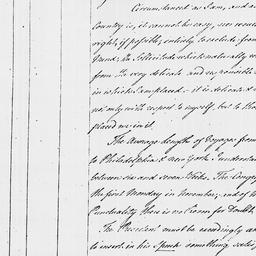 Circumstanced as I am, and as
Country is, it cannot be easy, nor
right, if possible, entirely to exclude from
mind, the Sollicitude which naturally
from the very delicate and responsible
in which I am placed - it is delicate and
not only with respect to myself, but to
placed me in it.
The Average length of Voyages from
to Philadelphia & New York I understand
between six and seven Weeks. The Congress
the first Monday in November, and of
Punctuality there is no room for Doubt.
The President must be accordingly
to insert in his Speech something